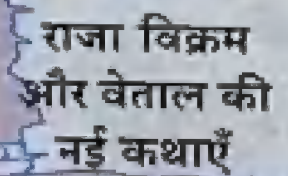 राजा विक्रम
और वेताल की
नई कथाएँ